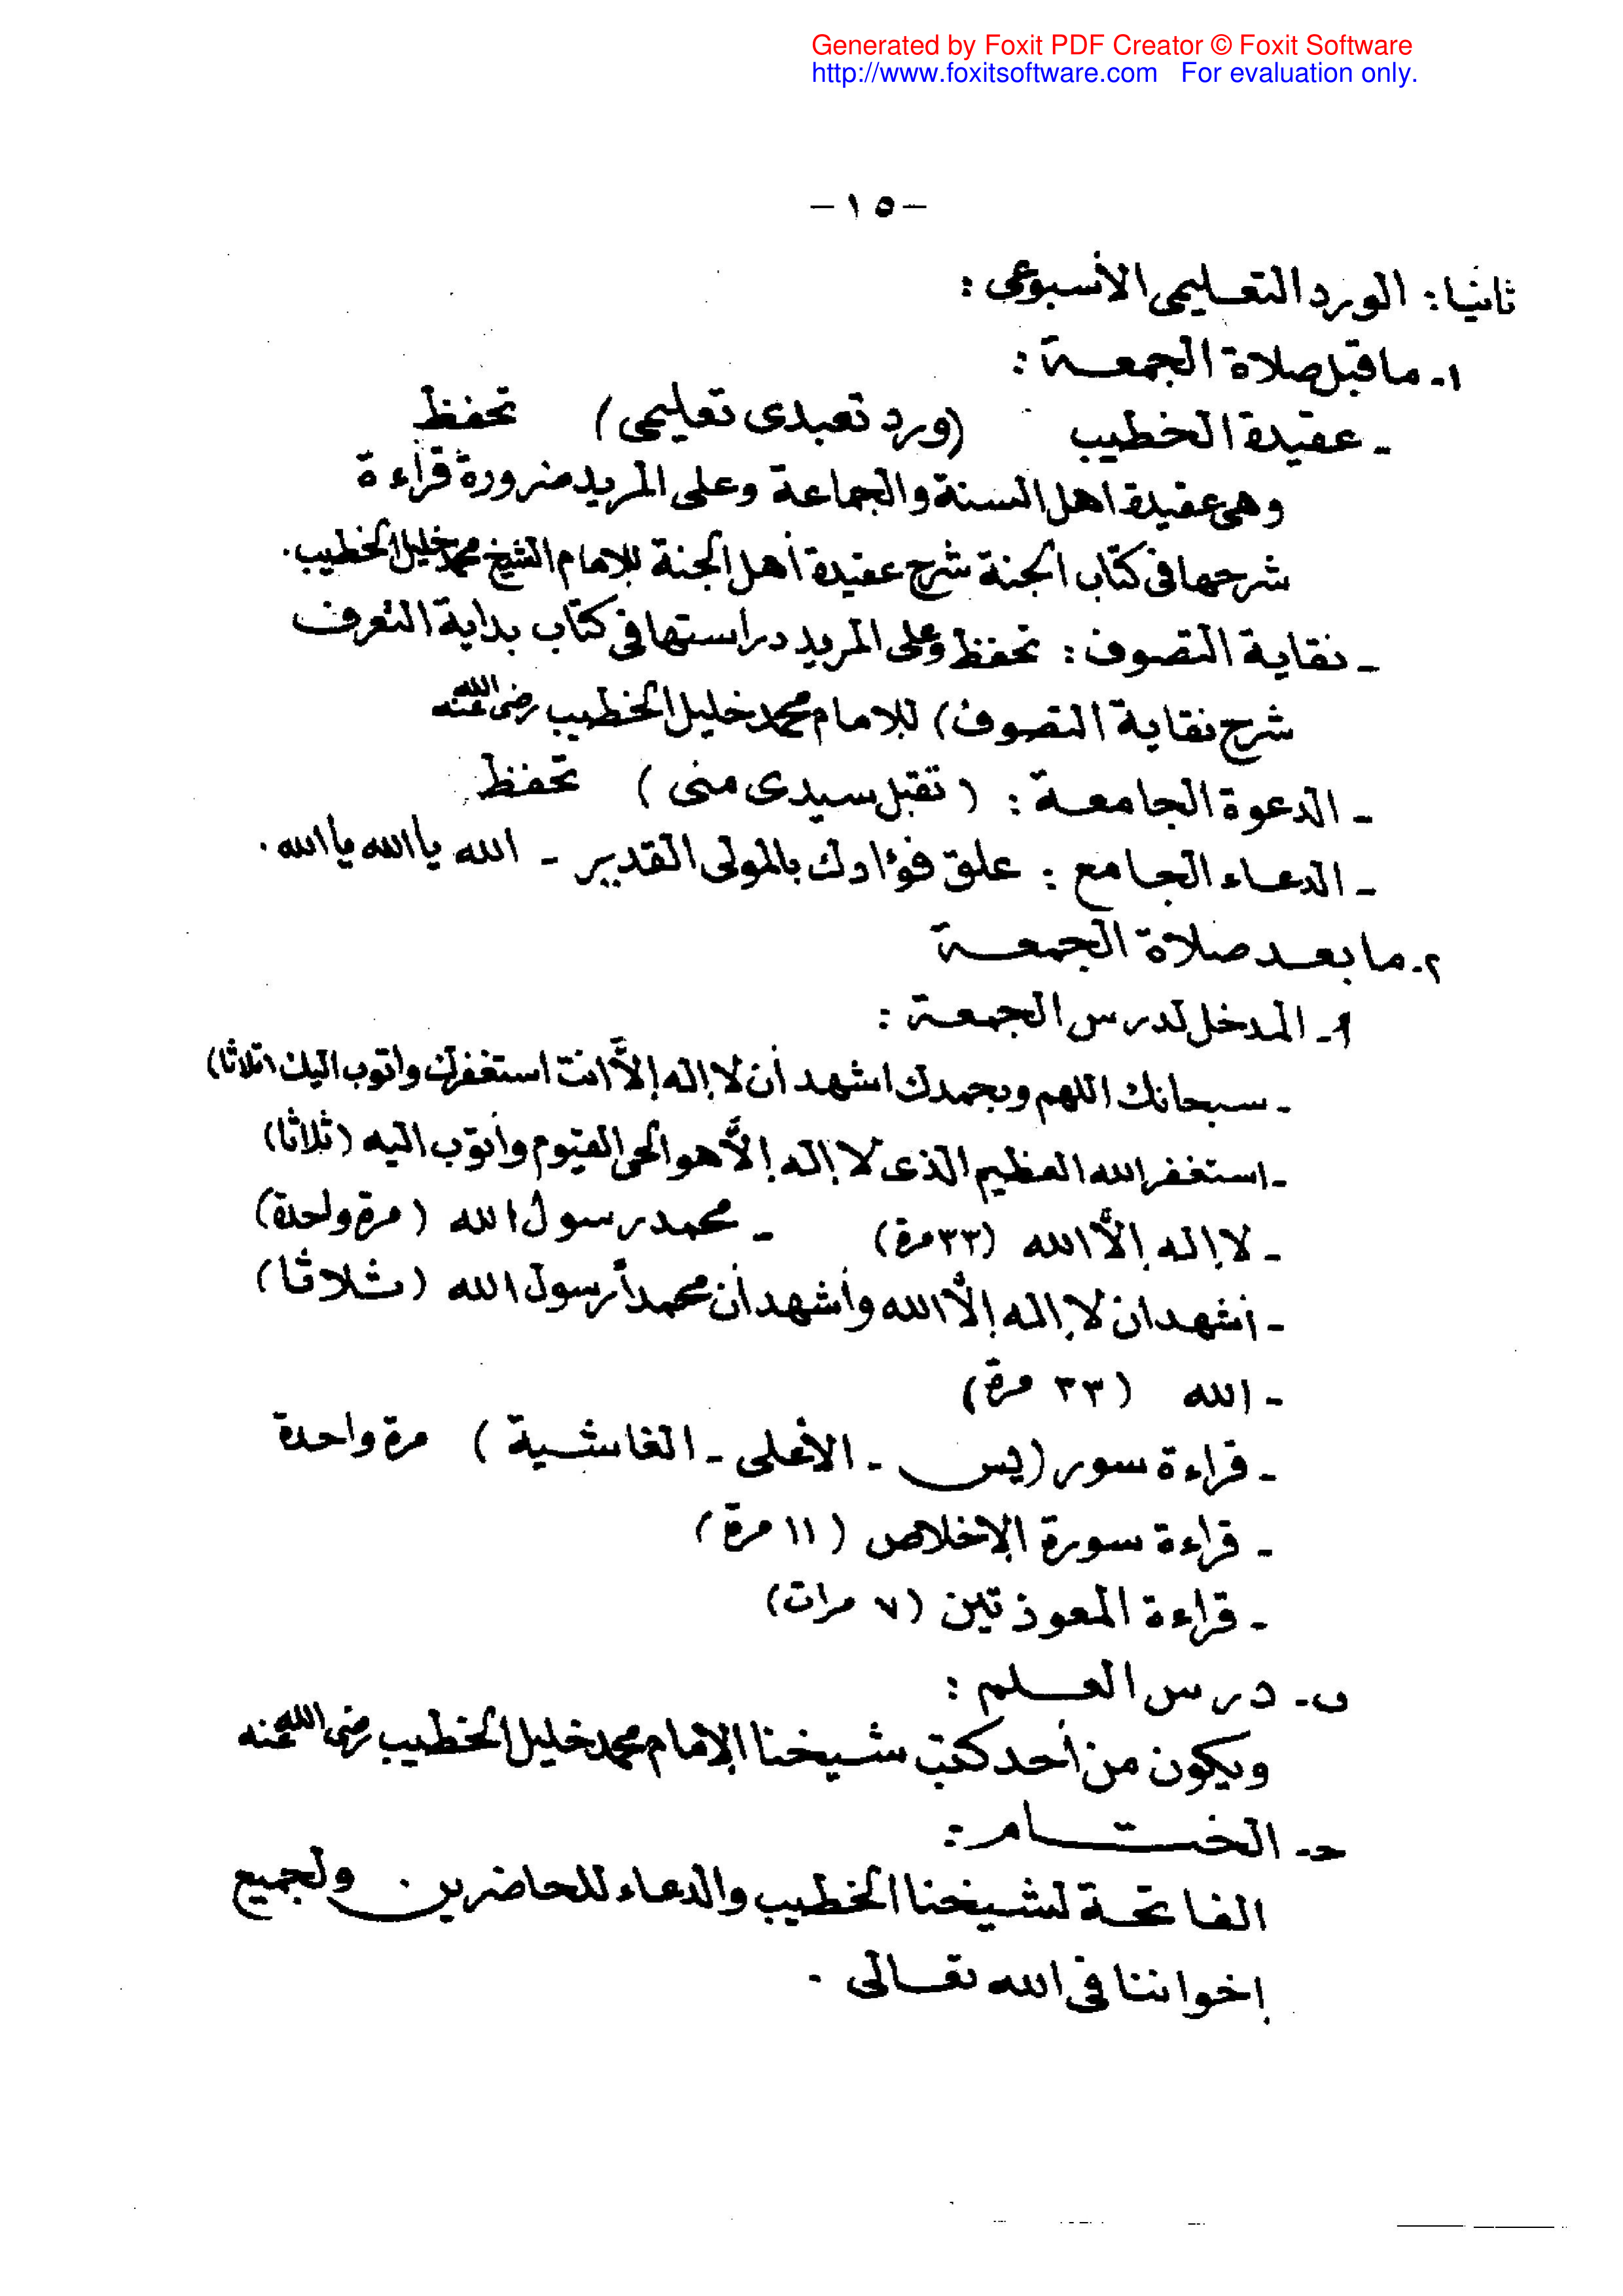 Generated by Foxit PDF Creator © Foxit Software
http://www.foxitsoftware.com For evaluation only.
-١٥-
ثانيا: الورد التعليمى الأسبوعى :
١- ماقبل صلاة الجمعة :
- عقيدة الخطيب (ورد تعبدى تعليمى) تحفظ
وهى عقيدة اهل السنة والجماعة وعلى المريد ضرورة قراءة
شرحها فى كتاب الجنة شرح عقيدة أهل الجنة للامام الشيخ محمد خليل الخطيب.
- نقاية التصوف : تحفظ وعلى المريد دراستها فى كتاب بداية التعرف
شرح نقاية التصوف) للامام محمد خليل الخطيب رضى الله عنه
- الدعوة الجامعة : (تقبل سيدى منى) تحفظ
- الدعاء الجامع : علق فؤادك بالمولى القدير - الله يا الله يا الله.
٢- ما بعد صلاة الجمعة
أ- المدخل لدرس الجمعة :
- سبحانك اللهم وبحمدك اشهد أن لا إله إلَّا انت استغفرك واتوب اليك (ثلاثا)
- استغفر الله العظيم الذى لا إله إلَّا هو الحى القيوم وأتوب اليه (ثلاثا)
- لا إله إلَّا الله (٣٣ مرة) - محمد رسول الله (مرة واحدة)
- أشهد ان لا إله إلَّا الله وأشهد أن محمداً رسول الله (ثلاثا)
- الله (٣٣ مرة)
- قراءة سور (يس - الأعلى - الغاشية) مرة واحدة
- قراءة سورة الإخلاص (١١ مرة)
- قراءة المعوذتين (٧ مرات)
ب- درس العلم :
ويكون من أحد كتب شيخنا الإمام محمد خليل الخطيب رضى الله عنه
حـ- الختام :
الفاتحة لشيخنا الخطيب والدعاء للحاضرين ولجميع
إخواننا فى الله تعالى .